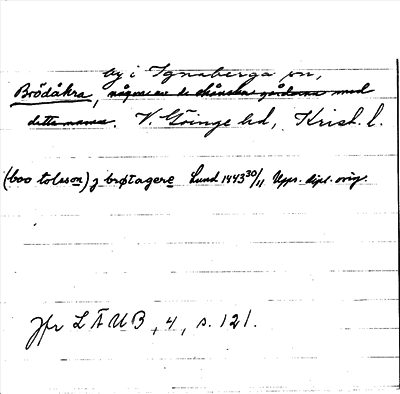 by i Ignaberga sn,
Brödåkra, någon av de skånska gårdarna med
detta namn. V. Göinge hd, Krist. l.
(boo toleson) j brøtagere Lund 1443 30/11 Upps. dipl. orig.
Jfr LÄUB, 4, s. 121.